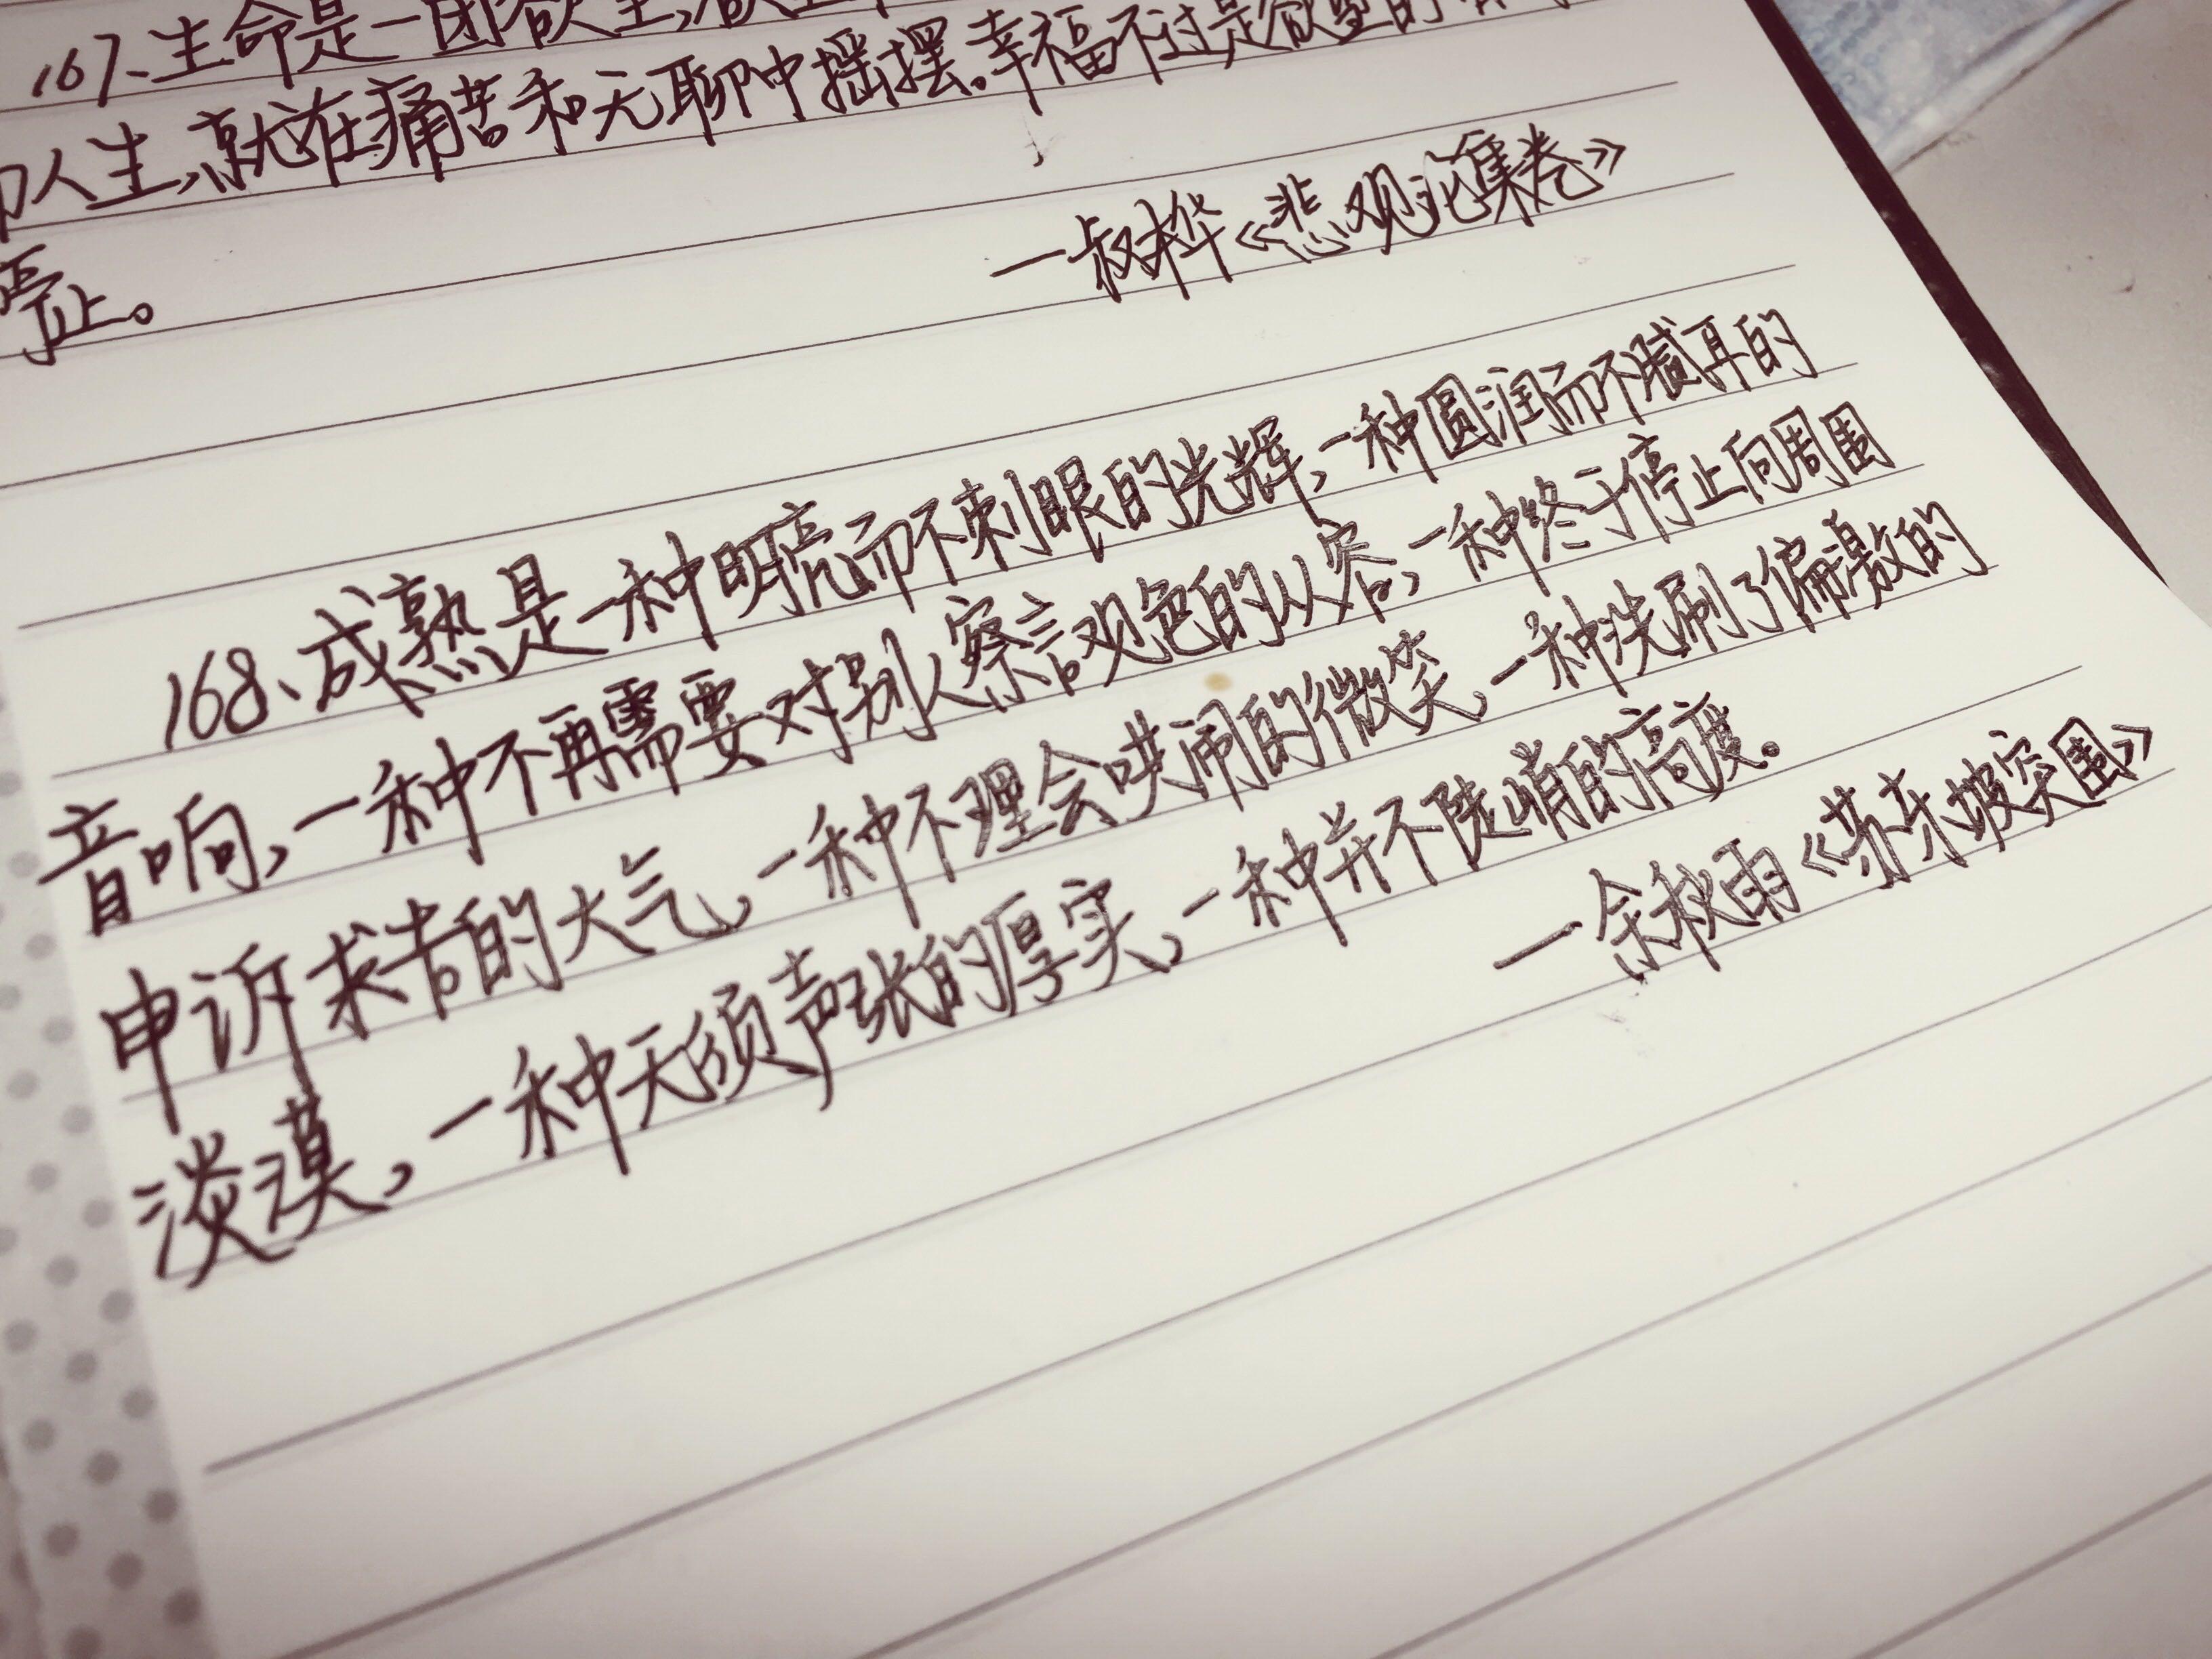 167、生命是一团欲望,欲望
人生,就在痛苦和无聊中摇摆。幸福不过是欲望的
停止。
一叔本华《悲观论集卷》
168、成熟是一种明亮而不刺眼的光辉,一种圆润而不腻耳的
音响,一种不再需要对别人察言观色的从容,一种终于停止向周围
申诉求告的大气,一种不理会哄闹的微笑,一种洗刷了偏激的
淡漠,一种无须声张的厚实,一种并不陡峭的高度。
一余秋雨《苏东坡突围》